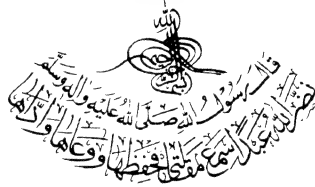 الله
بسم الله الرحمن الرحيم
قال رسول الله صلى الله عليه وآله وسلم
نضر الله عبدا سمع مقالتي فحفظها ووعاها وأداها